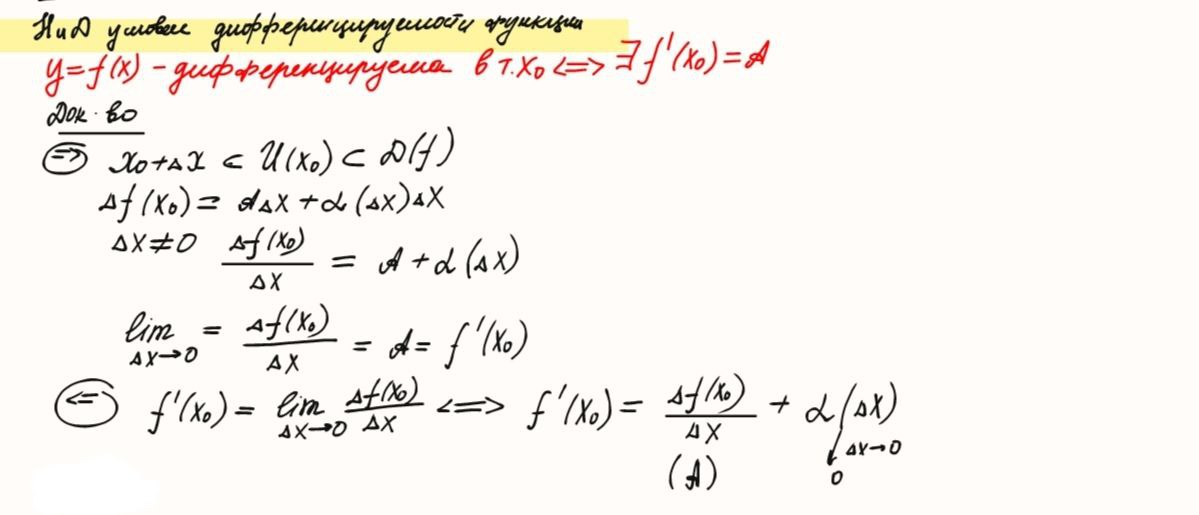 НиД условие дифференцируемости функции
y = f(x) - дифференцируема в т. x₀ <=> ∃ f'(x₀) = A
Док-во
=> x₀+Δx ⊂ U(x₀) ⊂ D(f)
Δf(x₀) = AΔx + α(Δx)Δx
Δx ≠ 0 Δf(x₀)/Δx = A + α(Δx)
lim Δx→0 = Δf(x₀)/Δx = A = f'(x₀)
<= f'(x₀) = lim Δx→0 Δf(x₀)/Δx <=> f'(x₀) = Δf(x₀)/Δx + α(Δx)
(A) ↓ Δx→0
0